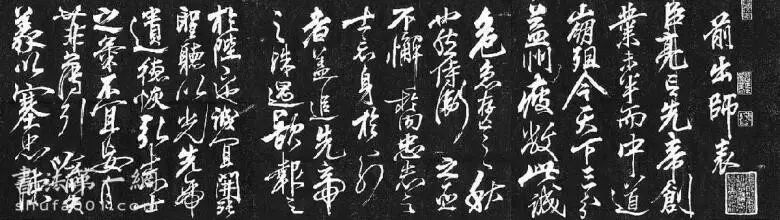 前出師表
臣亮言先帝創
業未半而中道
崩殂今天下三分
益州疲敝此誠
危急存亡之秋
也然侍衛之臣
不懈於內忠志之
士忘身於外
者蓋追先帝
之殊遇欲報之
於陛下誠宜開張
聖聽以光先帝
遺德恢弘志士
之氣不宜妄自
菲薄引喻失
義以塞忠